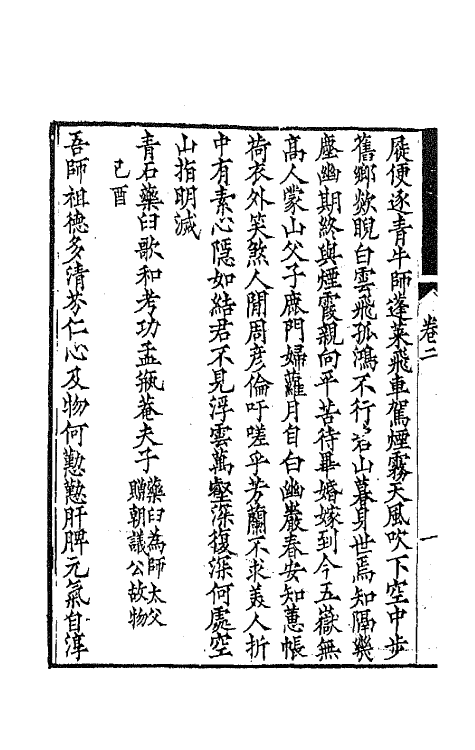 屣便逐青牛師蓬萊飛車駕煙霧天風吹下空中步
舊鄉欻睨白雲飛孤鴻不行若山暮身世焉知隔幾
塵幽期終與煙霞親向平苦待畢婚嫁到今五嶽無
高人蒙山父子鹿門婦蘿月自白幽巖春安知蕙帳
荷衣外笑煞人間周彦倫吁嗟乎芳蘭不求美人折
中有素心隱如結君不見浮雲萬壑深復深何處空
山指明滅
青石藥臼歌和考功孟瓶菴夫子藥臼為師太父贈朝議公故物
己酉
吾師祖德多清芬仁心及物何懃懃肝脾元氣自淳
卷二
一